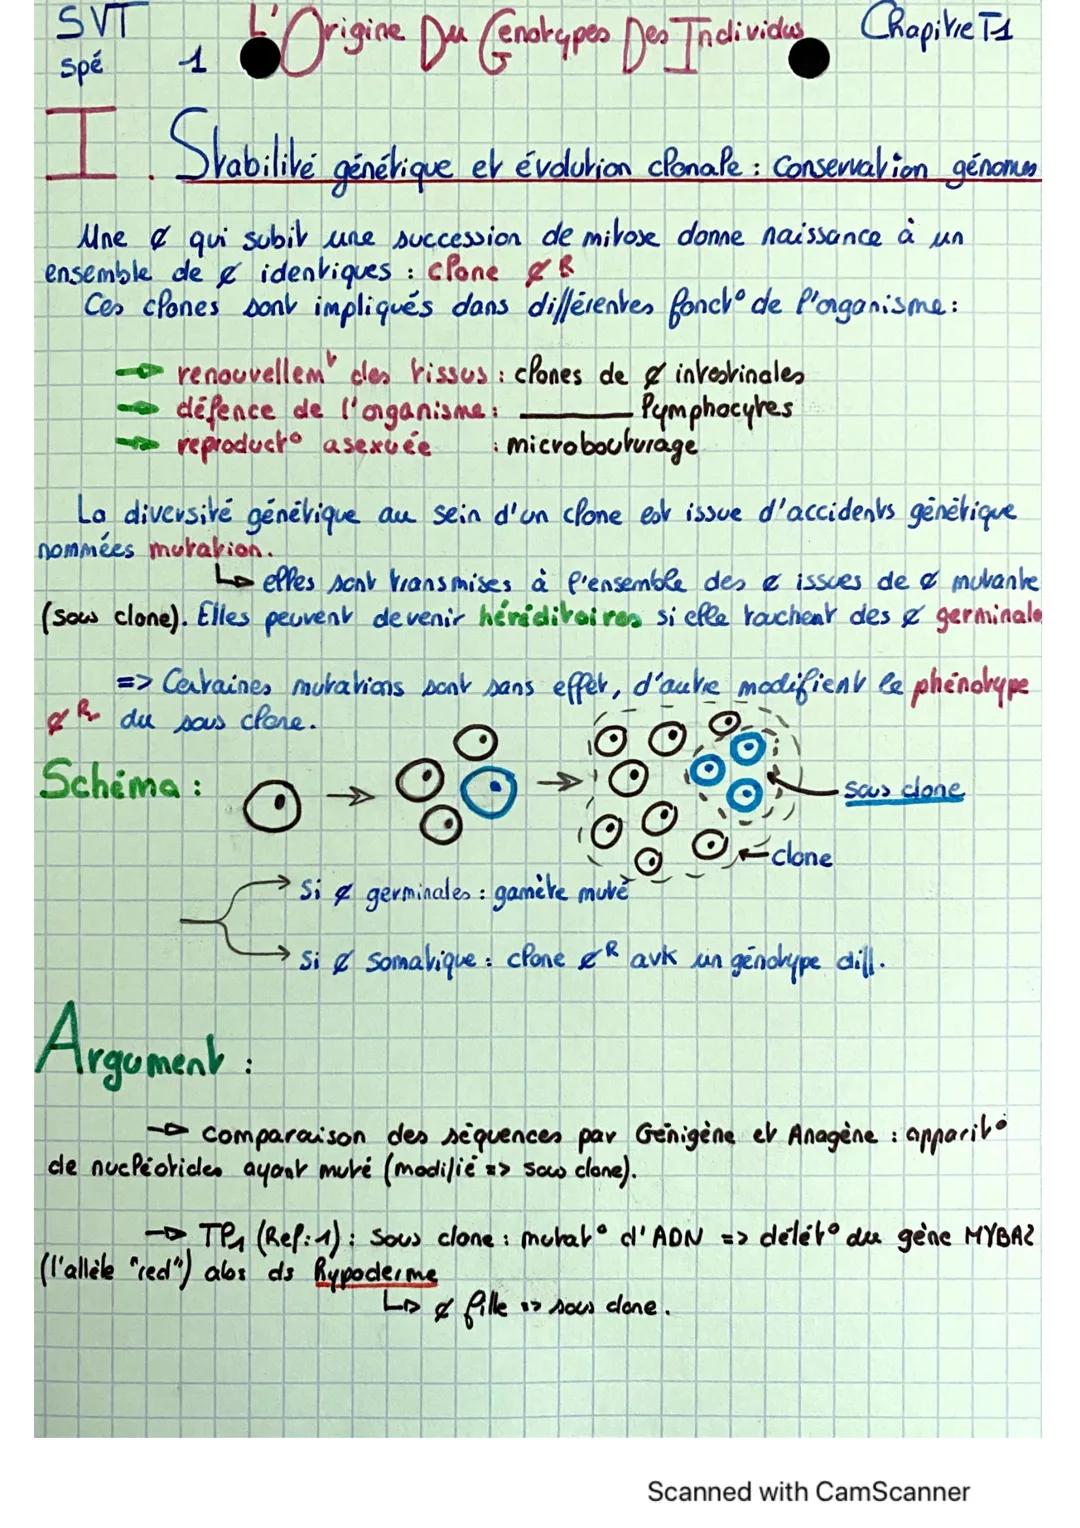 SVT
spé
1
L'Origine Du Génotypes Des Individus
Chapitre T1
I. Stabilité génétique et évolution clonale : Conservation génomes
Une ¢ qui subit une succession de mitose donne naissance à un
ensemble de ¢ identiques : clone ¢R
Ces clones sont impliqués dans différentes fonct° de l'organisme :
→ renouvellemt des tissus : clones de ¢ intestinales
→ défence de l'organisme : ______ lymphocytes
→ reproduct° asexuée : microbouturage
La diversité génétique au sein d'un clone est issue d'accidents génétique
nommées mutation.
↳ elles sont transmises à l'ensemble des ¢ issues de ¢ mutante
(sous clone). Elles peuvent devenir héréditaires si elle touchent des ¢ germinale
=> Certaines mutations sont sans effet, d'autre modifient le phénotype
¢R du sous clone.
Schéma :
sous clone
clone
Si ¢ germinales : gamète muté
Si ¢ somatique : clone ¢R avk un génotype diff.
Argument :
→ comparaison des séquences par Génigène et Anagène : apparit°
de nucléotides ayant muté (modifié => sous clone).
→ TP1 (Ref:1) : Sous clone : mutat° d'ADN => délét° du gène MYBA2
(l'allèle "red") abs ds hypoderme
↳ ¢ fille => sous clone.
Scanned with CamScanner